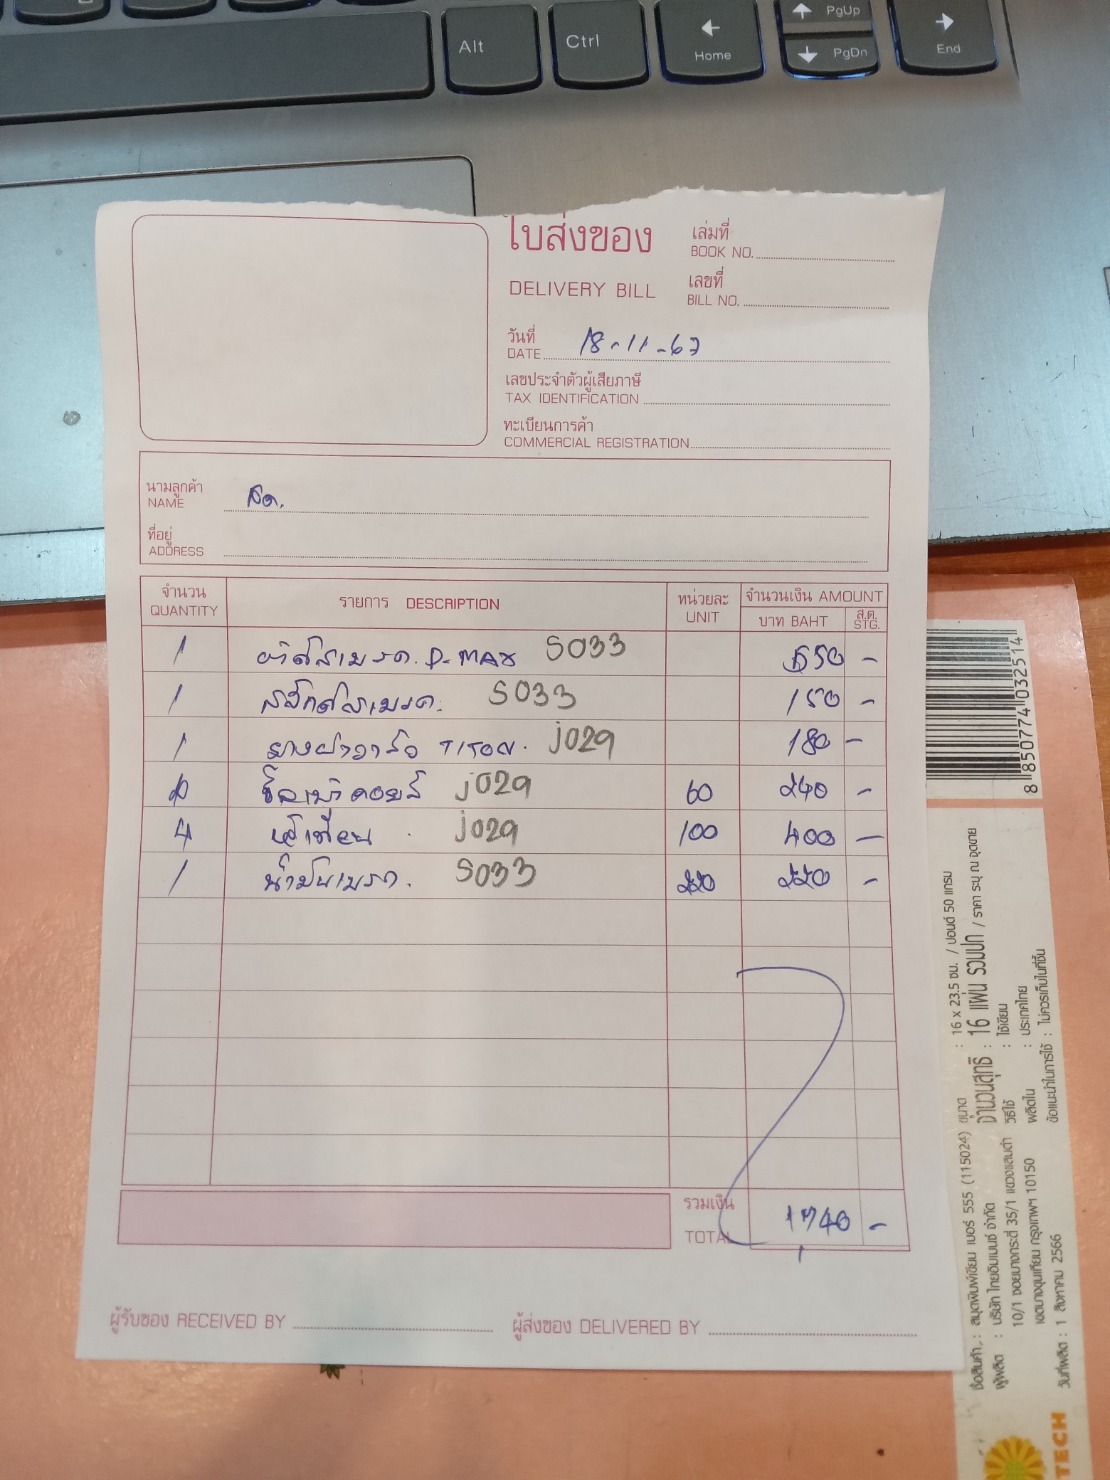 Alt
Ctrl
Home
PgUp
PgDn
End
ใบส่งของ
DELIVERY BILL
เล่มที่
BOOK NO.
เลขที่
BILL NO.
วันที่
DATE 18-11-67
เลขประจำตัวผู้เสียภาษี
TAX IDENTIFICATION
ทะเบียนการค้า
COMMERCIAL REGISTRATION
นามลูกค้า
NAME สด.
ที่อยู่
ADDRESS
จำนวน รายการ DESCRIPTION หน่วยละ จำนวนเงิน AMOUNT
QUANTITY UNIT บาท BAHT ส.ต. STG.
1 D-MAX S033 550 -
1 S033 150 -
1 J029 180 -
J029 60 240 -
4 หัวเทียน J029 100 400 -
1 น้ำมันเบรก. S033 220 220 -
รวมเงิน
TOTAL 1740 -
ผู้รับของ RECEIVED BY ผู้ส่งของ DELIVERED BY
8 850774 032514
ชื่อสินค้า : สมุดพิมพ์เขียน เบอร์ 555 (115024)
ผู้ผลิต : บริษัท ไทยอิมเมนซ์ จำกัด
10/1 ซอยบางกระดี่ 35/1 แขวงแสมดำ
เขตบางขุนเทียน กรุงเทพฯ 10150
วันที่ผลิต : 1 สิงหาคม 2566
ขนาด : 16 x 23.5 ซม. / ปอนด์ 50 แกรม
จำนวนสุทธิ : 16 แผ่น รวมปก / ราคา ระบุ ณ จุดขาย
วิธีใช้ : ใช้เขียน
ผลิตใน : ประเทศไทย
ข้อแนะนำในการใช้ : ไม่ควรเก็บในที่ชื้น
TECH